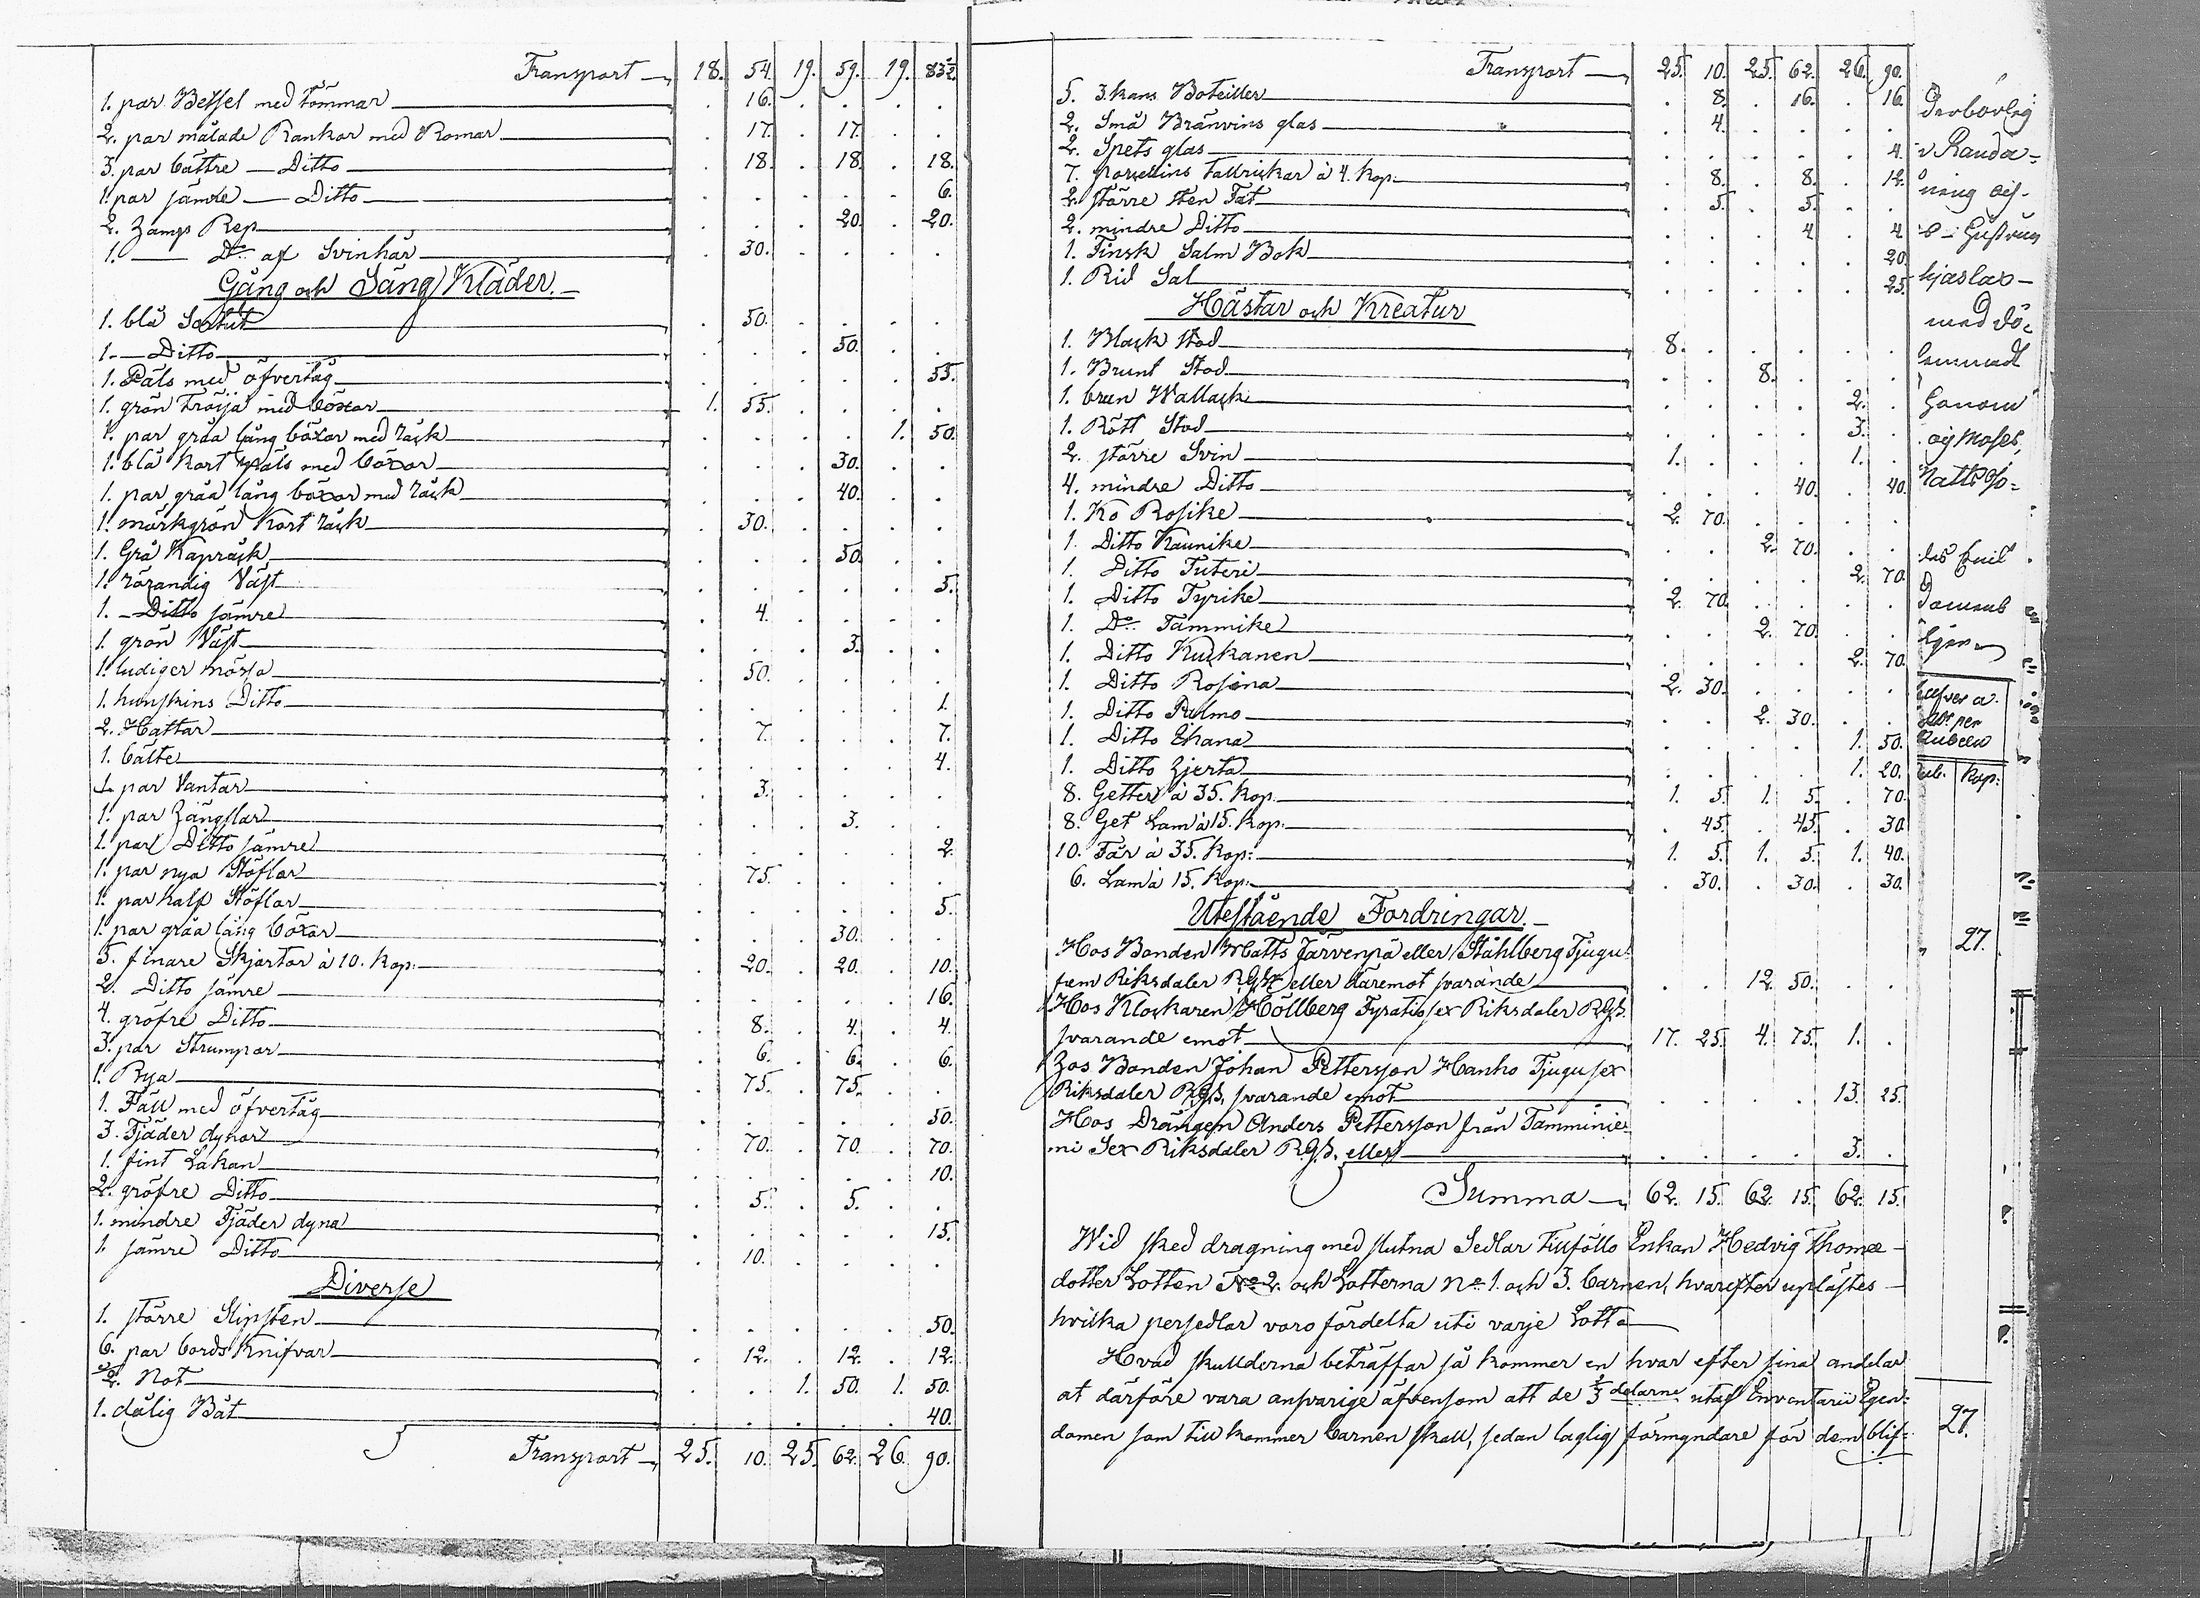 Transport 18. 54. 19. 59. 19. 83½
1. par Betsel med Tömmar . 16. . . . .
2. par målade Rankor med Romar . 17. . 17. . .
3. par bättre Ditto . 18. . 18. . 18.
1. par sämre Ditto . . . . . 6.
2. Zamps Rep . . . 20. . 20.
1. Do af Svinhår . 30. . . . .
Gång och Säng Kläder.
1. blå Sortut . 50. . . . .
1. Ditto . . . 50. . .
1. Päls med öfvertåg . . . . . 55.
1. grön Tröija med böxor 1. 55. . . . .
1. par gråa lång böxor med räck . . . . 1. 50.
1. blå kort päls med böxor . . . 30. . .
1. par gråa lång böxor med räck . . . 40. . .
1. mörkgrön Kort räck . 30. . . . .
1. Grå Kapräck . . . 50. . .
1. rörandig Väst . . . . . 5.
1. Ditto sämre . 4. . . . .
1. grön Väst . . . 3. . .
1. ludiger mössa . 50. . . . .
1. hunskins Ditto . . . . . 1.
2. Hattar . 7. . . . 7.
1. bälte . . . . . 4.
1. par Vantar . 3. . . . .
1. par Zängslar . . . 3. . .
1. par Ditto sämre . . . . . 2.
1. par nya Stöflar . 75. . . . .
1. par half Stöflar . . . . . 5.
1. par gråa lång böxor . . . 30. . .
5. finare Skjortor à 10. kop: . 20. . 20. . 10.
2. Ditto sämre . . . . . 16.
4. gröfre Ditto . 8. . 4. . 4.
3. par Strumpor . 6. . 6. . 6.
1. Rya . 75. . 75. . .
1. Fäll med öfvertåg . . . . . 50.
3. Fjäder dynor . 70. . 70. . 70.
1. fint Lakan . . . . . 10.
2. gröfre Ditto . 5. . 5. . .
1. mindre Fjäder dyna . . . . . 15.
1. sämre Ditto . 10. . . . .
Diverse
1. större Slipsten . . . . . 50.
6. par bords Knifvar . 12. . 12. . 12.
Not . . 1. 50. 1. 50.
1. dålig Båt . . . . . 40.
Transport 25. 10. 25. 62. 26. 90.
Transport 25. 10. 25. 62. 26. 90.
5. 3. kans Boteiller . 8. . 16. . 16.
2. Små Bränvins glas . 4. . . . .
2. Spets glas . . . . . 4.
7. porsellins Tallrickar à 4. kop: . 8. . 8. . 12.
2. större sten Fat . 5. . 5. . .
2. mindre Ditto . . . 4 . 4
1. Finsk Salm Bok . . . . . 20.
1. Rid Sal . . . . . 25.
Hästar och Kreatur
1. Black stod 8. . . . . .
1. Brunt Stod . . 8. . . .
1. brun Wallack . . . . 2. .
1. Rött Stod . . . . 3. .
2. större Svin 1. . . . 1. .
4. mindre Ditto . . . 40. . 40.
1. Ko Rosike 2. 70. . . . .
1. Ditto Kaunike . . 2. 70. . .
1. Ditto Tuteri . . . . 2. 70.
1. Ditto Tyrike 2. 70. . . . .
1. Do Tammike . . 2. 70. . .
1. Ditto Kuckanen . . . . 2. 70.
1. Ditto Rosina 2. 30. . . . .
1. Ditto Palmo . . 2. 30. . .
1. Ditto Ehana . . . . 1. 50.
1. Ditto Zjerta . . . . 1. 20.
8. Getter à 35. kop. 1. 5. 1. 5. . 70.
8. Get Lam à 15. kop: . 45. . 45. . 30.
10. Får à 35. Kop: 1. 5. 1. 5. 1. 40.
6. Lam à 15. Kop: . 30. . 30. . 30.
Utestående Fordringar.
Hos Bonden Matts Järvenpä eller Ståhlberg Tjugu-
fem Riksdaler RGS eller däremot svarande . . 12. 50. . .
Hos Klockaren Höllberg Fyratio sex Riksdaler RGS.
svarande emot 17. 25. 4. 75. 1. .
Zos Bonden Johan Pettersson Hanho Tjugu sex
Riksdaler RGS. svarande emot . . . . 13. 25.
Hos Drängen Anders Pettersson från Tamminie-
mi Sex Riksdaler RGS. eller . . . . 3. .
Summa 62. 15. 62. 15. 62. 15.
Wid sked dragning med slutna Sedlar Tillföllo Enkan Hedvig Thomæ
dotter Lotten No 2. och Lotterna No 1. och 3. barnen, hvarefter uplästes
hvilka persedlar voro fördelta uti varje Lott
Hvad skullderna beträffar så kommer en hvar efter sina andelar
at därföre vara ansvarige äfvensom att de ⅔ delarne utaf Inventarii Egen-
domen som till kommer barnen skall, sedan laglig förmyndare för dem blif-
med
Moses,
ub. Kop:
27.
27.